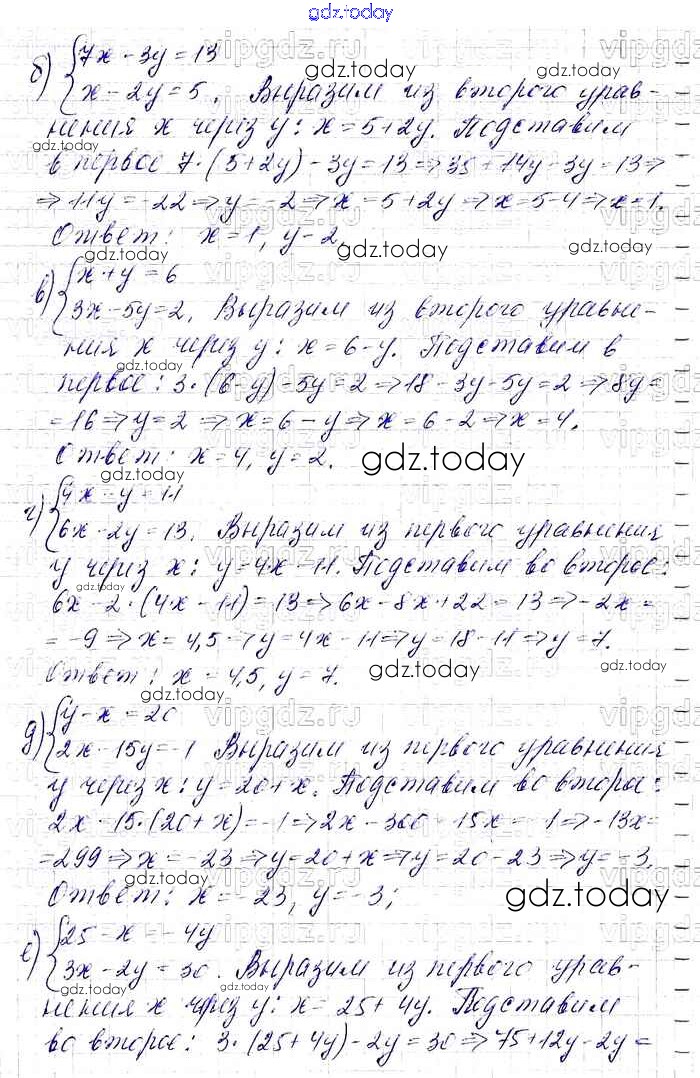 gdz.today
б) { 7x - 3y = 13
{ x - 2y = 5. Выразим из второго урав-
нения x через y: x = 5 + 2y. Подставим
в первое 7·(5+2y) - 3y = 13 ⇒ 35 + 14y - 3y = 13 ⇒
⇒ 11y = -22 ⇒ y = -2 ⇒ x = 5 + 2y ⇒ x = 5 - 4 ⇒ x = 1.
Ответ: x = 1, y - 2.
в) { x + y = 6
{ 3x - 5y = 2. Выразим из второго уравне-
ния x через y: x = 6 - y. Подставим в
первое: 3·(6 - y) - 5y = 2 ⇒ 18 - 3y - 5y = 2 ⇒ 8y =
= 16 ⇒ y = 2 ⇒ x = 6 - y ⇒ x = 6 - 2 ⇒ x = 4.
Ответ: x = 4, y = 2.
gdz.today
г) { 4x - y = 11
{ 6x - 2y = 13. Выразим из первого уравнения
y через x: y = 4x - 11. Подставим во второе:
6x - 2·(4x - 11) = 13 ⇒ 6x - 8x + 22 = 13 ⇒ -2x =
= -9 ⇒ x = 4,5 ⇒ y = 4x - 11 ⇒ y = 18 - 11 ⇒ y = 7.
Ответ: x = 4,5, y = 7.
gdz.today
д) { y - x = 20
{ 2x - 15y = -1 Выразим из первого уравнения
y через x: y = 20 + x. Подставим во второе:
2x - 15·(20 + x) = -1 ⇒ 2x - 300 - 15x = -1 ⇒ -13x =
= 299 ⇒ x = -23 ⇒ y = 20 + x ⇒ y = 20 - 23 ⇒ y = -3.
Ответ: x = -23, y = -3;
gdz.today
е) { 25 - x = -4y
{ 3x - 2y = 30. Выразим из первого урав-
нения x через y: x = 25 + 4y. Подставим
во второе: 3·(25 + 4y) - 2y = 30 ⇒ 75 + 12y - 2y =